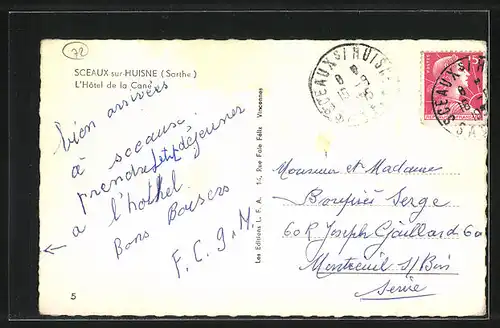 72
SCEAUX sur-HUISNE (Sarthe)
L'Hôtel de la Cane
bien arrivées
à sceaux
prendre petit déjeuner
a l'hothel
Bons Baisers
F. C. G. M.
5
Les Editions L. F. A. 16, Rue Faie Félix Vincennes
SCEAUX S/ HUISNE
SCEAUX S/
Monsieur et Madame
Serge
60 R. Joseph Gaillard 60
Montreuil s/ Bois
Seine